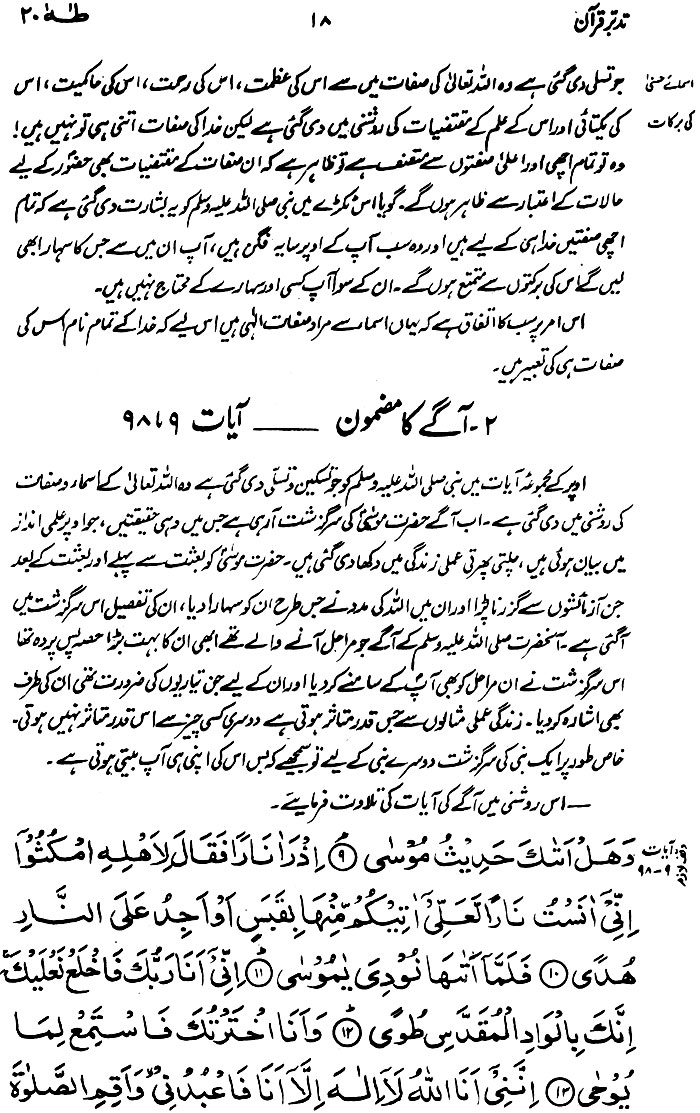 تدبر قرآن
۱۸
طٰهٰ ۲۰
اسمائے حسنیٰ
کی برکات
جو تسلی دی گئی ہے وہ اللہ تعالیٰ کی صفات میں سے اس کی عظمت، اس کی رحمت، اس کی حاکمیت، اس
کی یکتائی اور اس کے علم کے مقتضیات کی روشنی میں دی گئی ہے لیکن خدا کی صفات اتنی ہی تو نہیں ہیں!
وہ تو تمام اچھی اور اعلیٰ صفتوں سے متصف ہے تو ظاہر ہے کہ ان صفات کے مقتضیات بھی حضورؐ کے لیے
حالات کے اعتبار سے ظاہر ہوں گے۔ گویا اس ٹکڑے میں نبی صلی اللہ علیہ وسلم کو یہ بشارت دی گئی ہے کہ تمام
اچھی صفتیں خدا ہی کے لیے ہیں اور وہ سب آپ کے اوپر سایہ فگن ہیں، آپ ان میں سے جس کا سہارا بھی
لیں گے اس کی برکتوں سے متمتع ہوں گے۔ ان کے سوا آپ کسی اور سہارے کے محتاج نہیں ہیں۔
اس امر پر سب کا اتفاق ہے کہ یہاں اسماء سے مراد صفات الٰہی ہیں اس لیے کہ خدا کے تمام نام اس کی
صفات ہی کی تعبیر ہیں۔
۲- آگے کا مضمون ـــــــ آیات ۹ تا ۹۸
اوپر کے مجموعۂ آیات میں نبی صلی اللہ علیہ وسلم کو جو تسکین و تسلی دی گئی ہے وہ اللہ تعالیٰ کے اسماء و صفات
کی روشنی میں دی گئی ہے۔ اب آگے حضرت موسیٰؑ کی سرگزشت آ رہی ہے جس میں وہی حقیقتیں، جو اوپر علمی انداز
میں بیان ہوئی ہیں، چلتی پھرتی عملی زندگی میں دکھا دی گئی ہیں۔ حضرت موسیٰؑ کو بعثت سے پہلے اور بعثت کے بعد
جن آزمائشوں سے گزرنا پڑا اور ان میں اللہ کی مدد نے جس طرح ان کو سہارا دیا، ان کی تفصیل اس سرگزشت میں
آ گئی ہے۔ آنحضرت صلی اللہ علیہ وسلم کے آگے جو مراحل آنے والے تھے ابھی ان کا بہت بڑا حصہ پس پردہ تھا
اس سرگزشت نے ان مراحل کو بھی آپؐ کے سامنے کر دیا اور ان کے لیے جن تیاریوں کی ضرورت تھی ان کی طرف
بھی اشارہ کر دیا۔ زندگی عملی مثالوں سے جس قدر متاثر ہوتی ہے دوسری کسی چیز سے اس قدر متاثر نہیں ہوتی۔
خاص طور پر ایک نبی کی سرگزشت دوسرے نبی کے لیے تو سمجھیے کہ بس اس کی اپنی ہی آپ بیتی ہوتی ہے۔
— اس روشنی میں آگے کی آیات کی تلاوت فرمایئے۔
آیات
۹-۹۸
وقف لازم
وَهَلْ اَتٰىكَ حَدِيْثُ مُوْسٰى ۹ اِذْ رَاٰ نَارًا فَقَالَ لِاَهْلِهِ امْكُثُوْٓا
اِنِّيْٓ اٰنَسْتُ نَارًا لَّعَلِّيْٓ اٰتِيْكُمْ مِّنْهَا بِقَبَسٍ اَوْ اَجِدُ عَلَى النَّارِ
هُدًى ۱۰ فَلَمَّآ اَتٰىهَا نُوْدِيَ يٰمُوْسٰى ۱۱ اِنِّيْٓ اَنَا رَبُّكَ فَاخْلَعْ نَعْلَيْكَ
اِنَّكَ بِالْوَادِ الْمُقَدَّسِ طُوًى ۱۲ وَاَنَا اخْتَرْتُكَ فَاسْتَمِعْ لِمَا
يُوْحٰى ۱۳ اِنَّنِيْٓ اَنَا اللّٰهُ لَآ اِلٰهَ اِلَّآ اَنَا فَاعْبُدْنِيْ وَاَقِمِ الصَّلٰوةَ